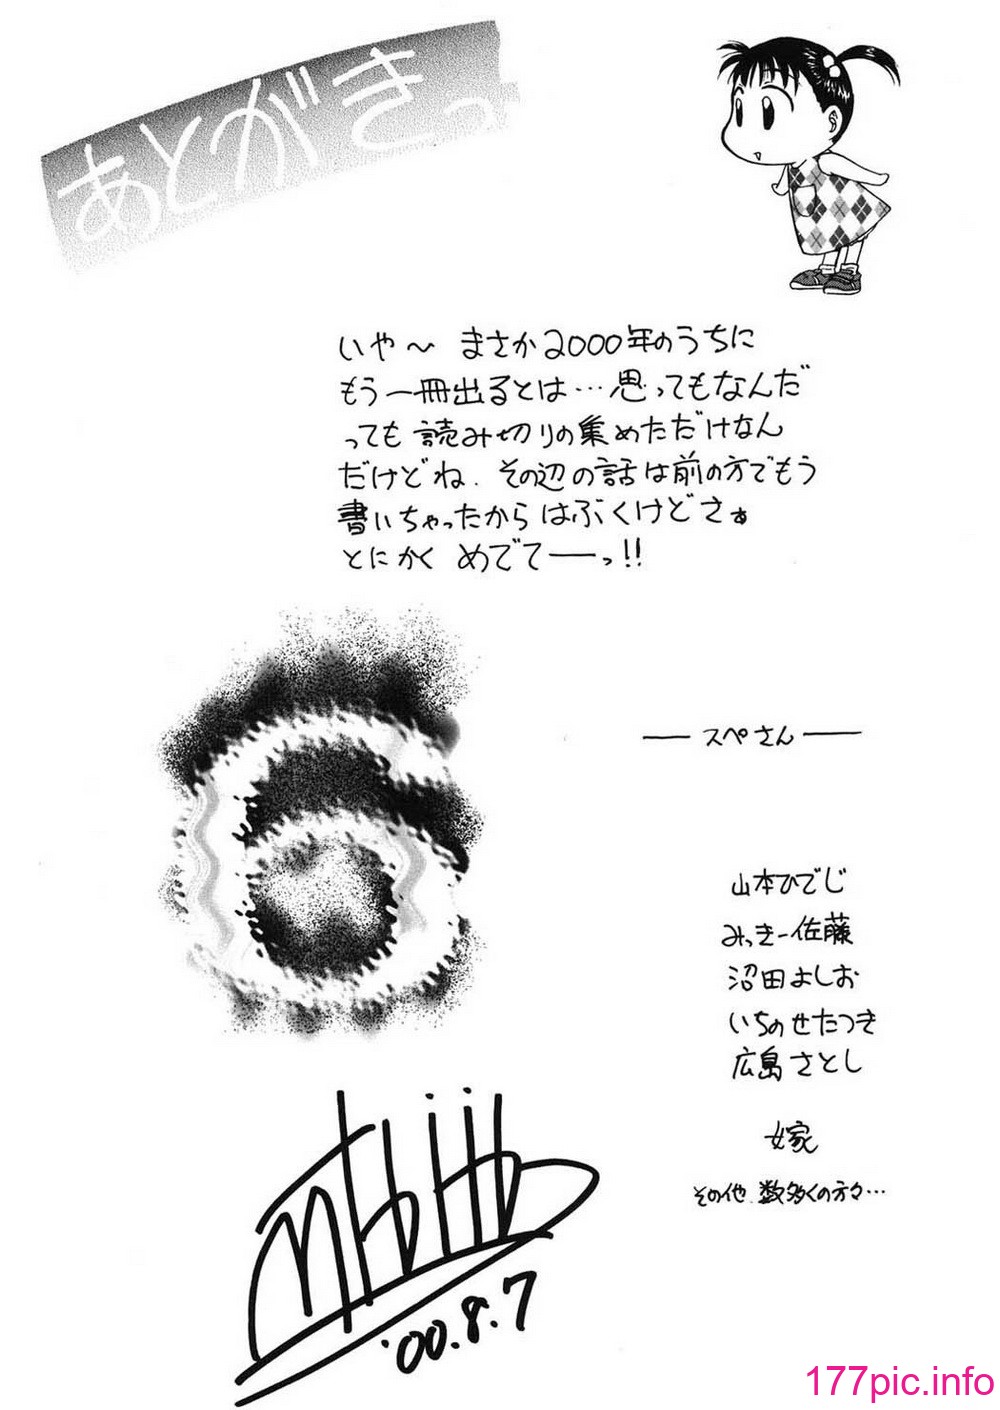 あとがきっ
いや〜 まさか2000年のうちに
もう一冊出るとは…思ってもなんだ
っても 読み切りの集めただけなん
だけどね、その辺の話は前の方でもう
書いちゃったから はぶくけどさぁ
とにかく めでてーっ!!
— スペさん —
山本ひでじ
みっきー佐藤
沼田よしお
いちのせたつき
広島さとし
嫁
その他、数多くの方々…
'00.8.7
177pic.info